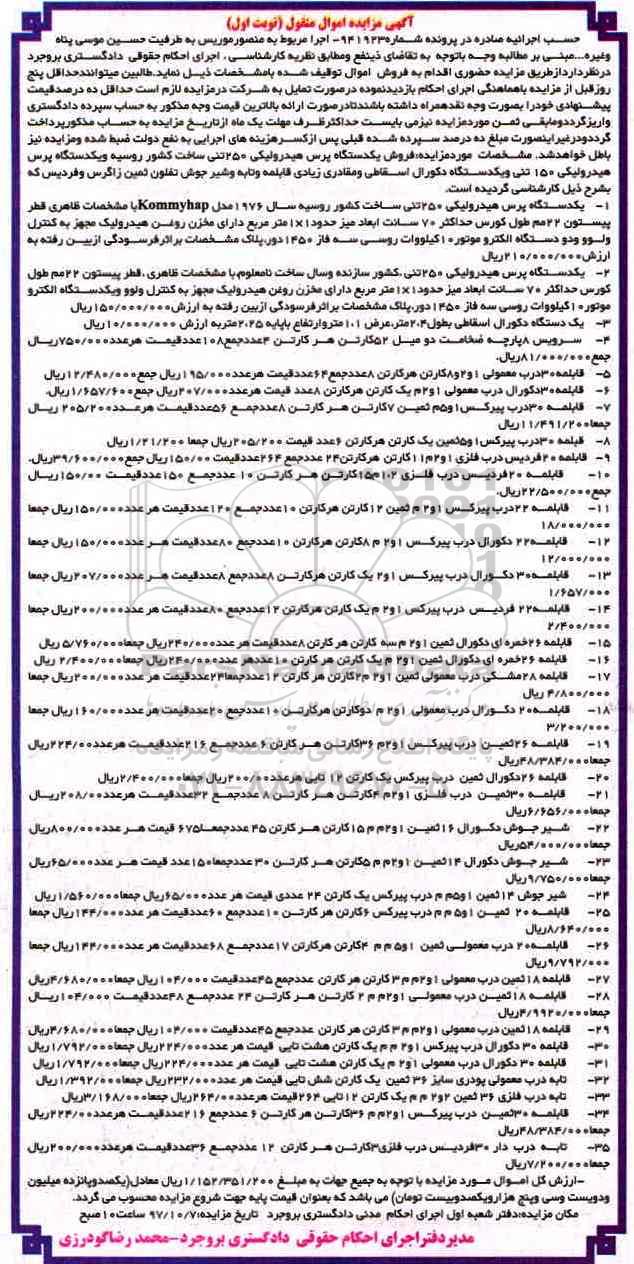 آگهی مزایده اموال منقول (نوبت اول)
حسب اجرائیه صادره در پرونده شماره۹۴۱۹۲۳- اجرا مربوط به منصورموریس به طرفیت حسین موسی پناه
وغیره...مبنی بر مطالبه وجه باتوجه به تقاضای ذینفع ومطابق نظریه کارشناسی ، اجرای احکام حقوقی دادگستری بروجرد
درنظرداردازطریق مزایده حضوری اقدام به فروش اموال توقیف شده بامشخصات ذیل نماید.طالبین میتوانندحداقل پنج
روزقبل از مزایده باهماهنگی اجرای احکام بازدیدنموده درصورت تمایل به شرکت درمزایده لازم است حداقل ده درصدقیمت
پیشنهادی خودرا بصورت وجه نقدهمراه داشته باشندتادرصورت ارائه بالاترین قیمت وجه مذکور به حساب سپرده دادگستری
واریزگرددومابقی ثمن موردمزایده نیزمی بایست حداکثرظرف مهلت یک ماه ازتاریخ مزایده به حساب مذکورپرداخت
گرددودرغیراینصورت مبلغ ده درصد سپرده شده قبلی پس ازکسرهزینه های اجرایی به نفع دولت ضبط شده ومزایده نیز
باطل خواهدشد. مشخصات موردمزایده:فروش یکدستگاه پرس هیدرولیکی ۲۵۰تنی ساخت کشور روسیه ویکدستگاه پرس
هیدرولیکی ۱۵۰ تنی ویکدستگاه دکورال اسقاطی ومقادری زیادی قابلمه وتابه وشیر جوش تفلون ثمین زاگرس وفردیس که
بشرح ذیل کارشناسی گردیده است.
۱- یکدستگاه پرس هیدرولیکی ۲۵۰تنی ساخت کشور روسیه سال ۱۹۷۶مدل Kommyhapبا مشخصات ظاهری قطر
پیستون ۲۲مم طول کورس حداکثر ۷۰ سانت ابعاد میز حدود۱×۱متر مربع دارای مخزن روغن هیدرولیک مجهز به کنترل
ولوو ودو دستگاه الکترو موتور۱۰کیلووات روسی سه فاز ۱۴۵۰دور.پلاک مشخصات براثرفرسودگی ازبین رفته به
ارزش۲۱۰/۰۰۰/۰۰۰ریال
۲- یکدستگاه پرس هیدرولیکی ۲۵۰تنی ،کشور سازنده وسال ساخت نامعلوم.با مشخصات ظاهری ، قطر پیستون ۲۲مم طول
کورس حداکثر ۷۰ سانت ابعاد میز حدود۱×۱متر مربع دارای مخزن روغن هیدرولیک مجهز به کنترل ولوو ویکدستگاه الکترو
موتور۱۰کیلووات روسی سه فاز ۱۴۵۰دور.پلاک مشخصات براثرفرسودگی ازبین رفته به ارزش۱۵۰/۰۰۰/۰۰۰ریال
۳- یک دستگاه دکورال اسقاطی بطول۲.۴متر،عرض ۱.۱متروارتفاع باپایه ۲.۲۵متربه ارزش ۱۰/۰۰۰/۰۰۰ریال
۴- سرویس ۸پارچه ضخامت دو میل ۵۲کارتن هر کارتن ۴عددجمع۱۰۸عددقیمت هرعدد۷۵۰/۰۰۰ریال
جمع۸۱/۰۰۰/۰۰۰ریال.
۵- قابلمه۳۰درب معمولی ۱و۲و۸کارتن هرکارتن ۸عددجمع۶۴عددقیمت هرعدد۱۹۵/۰۰۰ریال جمع۱۲/۴۸۰/۰۰۰ریال
۶- قابلمه۳۰دکورال درب معمولی ۱و۲م یک کارتن هرکارتن ۸عدد قیمت هرعدد۲۰۷/۰۰۰ریال جمع۱/۶۵۷/۶۰۰ریال.
۷- قابلمه ۳۰درب پیرکس۱و۵م ثمین ۷کارتن هر کارتن ۸عددجمع ۵۶عددقیمت هرعدد۲۰۵/۲۰۰ ریال
جمعا۱۱/۴۹۱/۲۰۰ریال
۸- قبلمه ۳۰درب پیرکس۱و۵ثمین یک کارتن هرکارتن ۶عدد قیمت ۲۰۵/۲۰۰ریال جمعا ۱/۲۱/۲۰۰ریال
۹- قابلمه ۲۰فردیس درب فلزی ۱و۲م۱۱کارتن هرکارتن۲۴ عددجمع ۲۶۴عددقیمت ۱۵۰/۰۰ریال جمع۳۹/۶۰۰/۰۰۰ریال.
۱۰- قابلمه ۲۰فردیس درب فلزی ۱.۲م۱۵کارتن هر کارتن ۱۰ عددجمع ۱۵۰عددقیمت ۱۵۰/۰۰ریال
جمع۲۲/۵۰۰/۰۰۰ریال.
۱۱- قابلمه ۲۲درب پیرکس ۱و۲ م ثمین ۱۲کارتن هرکارتن ۱۰عددجمع ۱۲۰عددقیمت هر عدد۱۵۰/۰۰۰ریال جمعا
۱۸/۰۰۰/۰۰۰
۱۲- قابلمه۲۲ دکورال درب پیرکس ۱و۲ م ۸کارتن هرکارتن ۱۰عددجمع ۸۰عددقیمت هر عدد۱۵۰/۰۰۰ریال جمعا
۱۲/۰۰۰/۰۰۰
۱۳- قابلمه۳۰ دکورال درب پیرکس ۱و۲ یک کارتن هرکارتن ۸عددجمع ۸عددقیمت هر عدد۲۰۷/۰۰۰ریال جمعا
۱/۶۵۷/۰۰۰
۱۴- قابلمه۲۲ فردیس درب پیرکس ۱و۲ م یک کارتن هرکارتن ۱۲عددجمع ۸۰عددقیمت هر عدد۲۰۰/۰۰۰ریال جمعا
۲/۴۰۰/۰۰۰
۱۵- قابلمه ۲۶خمره ای دکورال ثمین ۱و۲ م سه کارتن هر کارتن ۸عددقیمت هر عدد۲۴۰/۰۰۰ریال جمعا۵/۷۶۰/۰۰۰ ریال
۱۶- قابلمه ۲۶خمره ای دکورال ثمین ۱و۲ م یک کارتن هر کارتن ۱۰عددهر عدد۲۴۰/۰۰۰ریال جمعا۲/۴۰۰/۰۰۰ ریال
۱۷- قابلمه ۲۸مشکی درب معمولی ثمین ۱و۲ م۲کارتن هر کارتن ۱۲عددجمعا۲۴عددقیمت هر عدد۲۰۰/۰۰۰ریال جمعا
۴/۸۰۰/۰۰۰ ریال
۱۸- قابلمه۲۰ دکورال درب معمولی ۱و۲ م دوکارتن هرکارتن ۱۰عددجمع ۲۰عددقیمت هر عدد۱۶۰/۰۰۰ریال جمعا
۳/۲۰۰/۰۰۰
۱۹- قابلمه ۲۶ثمین درب پیرکس ۱و۲م ۳۶کارتن هر کارتن ۶ عددجمع ۲۱۶عددقیمت هرعدد۲۲۴/۰۰ریال
جمعا۴۸/۳۸۴/۰۰۰ریال
۲۰- قابلمه ۲۶دکورال ثمین درب پیرکس یک کارتن ۱۲ تایی هرعدد۲۰۰/۰۰ریال جمعا۲/۴۰۰/۰۰۰ریال
۲۱- قابلمه ۳۰ثمین درب فلزی ۱و۲م ۴کارتن هر کارتن ۸ عددجمع ۳۲عددقیمت هرعدد۲۰۸/۰۰ریال
جمعا۶/۶۵۶/۰۰۰ریال
۲۲- شیر جوش دکورال ۱۶ثمین ۱و۲م م ۱۵کارتن هر کارتن ۴۵ عددجمعا۶۷۵ قیمت هر عدد۸۰/۰۰۰ریال
جمعا۵۴/۰۰۰/۰۰۰ریال
۲۳- شیر جوش دکورال ۱۴ثمین ۱و۲م م ۵کارتن هر کارتن ۳۰ عددجمعا۱۵۰عدد قیمت هر عدد۶۵/۰۰۰ریال
جمعا۹/۷۵۰/۰۰۰ریال
۲۴- شیر جوش ۱۴ثمین ۱و۵م م درب پیرکس یک کارتن ۲۴ عددی قیمت هر عدد۶۵/۰۰۰ریال جمعا۱/۵۶۰/۰۰۰ریال
۲۵- قابلمه ۲۰ ثمین ۱و۵ م م درب پیرکس ۶کارتن هرکارتن ۱۰عددجمع ۶۰عددقیمت هر عدد۱۴۴/۰۰۰ریال جمعا
۸/۶۴۰/۰۰۰ریال
۲۶- قابلمه۲۰ درب معمولی ثمین ۱و۵ م م ۴کارتن هرکارتن ۱۷عددجمع ۶۸عددقیمت هر عدد۱۴۴/۰۰۰ریال جمعا
۹/۷۹۲/۰۰۰ریال
۲۷- قابلمه ۱۸ثمین درب معمولی ۱و۲م م ۳ کارتن هر کارتن عددجمع ۴۵عددقیمت ۱۰۴/۰۰۰ریال جمعا۴/۶۸۰/۰۰۰ریال
۲۸- قابلمه ۱۸ثمین درب معمولی ۱و۲م م ۲ کارتن هر کارتن ۲۴ عددجمع ۴۸عددقیمت ۱۰۴/۰۰۰ریال
جمعا۴/۹۹۲۰/۰۰۰ریال
۲۹- قابلمه ۱۸ثمین درب معمولی ۱و۲م م ۳ کارتن هر کارتن عددجمع ۴۵عددقیمت ۱۰۴/۰۰۰ ریال جمعا۴/۶۸۰/۰۰۰ریال
۳۰- قابلمه ۳۰ دکورال درب پیرکس ۱و۲ م م یک کارتن هشت تایی قیمت هر عدد۲۲۴/۰۰۰ریال جمعا۱/۷۹۲/۰۰۰ریال
۳۱- قابلمه ۳۰ دکورال درب معمولی ۱و۲ م یک کارتن هشت تایی قیمت هر عدد۲۲۴/۰۰۰ریال جمعا۱/۷۹۲/۰۰۰ریال
۳۲- تابه درب معمولی پودری سایز ۳۶ ثمین یک کارتن شش تایی قیمت هر عدد۲۳۲/۰۰۰ریال جمعا۱/۳۹۲/۰۰۰ریال
۳۳- تابه درب فلزی ۳۶ ثمین ۲و۲ م م یک کارتن ۱۲تایی ۲۶۴قیمت هرعدد۲۶۴/۰۰۰ریال جمعا۳/۱۶۸/۰۰۰ریال
۳۴- قابلمه ۳۰ثمین درب پیرکس ۱و۲م م ۳۶کارتن هر کارتن ۶ عددجمع ۲۱۶عددقیمت هرعدد۲۲۴/۰۰ریال
جمعا۴۸/۳۸۴/۰۰۰ریال
۳۵- تابه درب دار ۳۰فردیس درب فلزی۳کارتن هر کارتن ۱۲ عددجمع ۳۶عددقیمت هرعدد۲۰۰/۰۰۰ریال
جمعا۷/۲۰۰/۰۰۰ریال
-ارزش کل اموال مورد مزایده با توجه به جمیع جهات به مبلغ ۱/۱۵۲/۳۵۱/۲۰۰ریال معادل(یکصدوپانزده میلیون
ودویست وسی وپنج هزارویکصدوبیست تومان) می باشد که بعنوان قیمت پایه جهت شروع مزایده محسوب می گردد.
مکان مزایده:دفتر شعبه اول اجرای احکام مدنی دادگستری بروجرد تاریخ مزایده:۹۷/۱۰/۷ ساعت۱۰صبح
مدیردفتراجرای احکام حقوقی دادگستری بروجرد-محمد رضاگودرزی